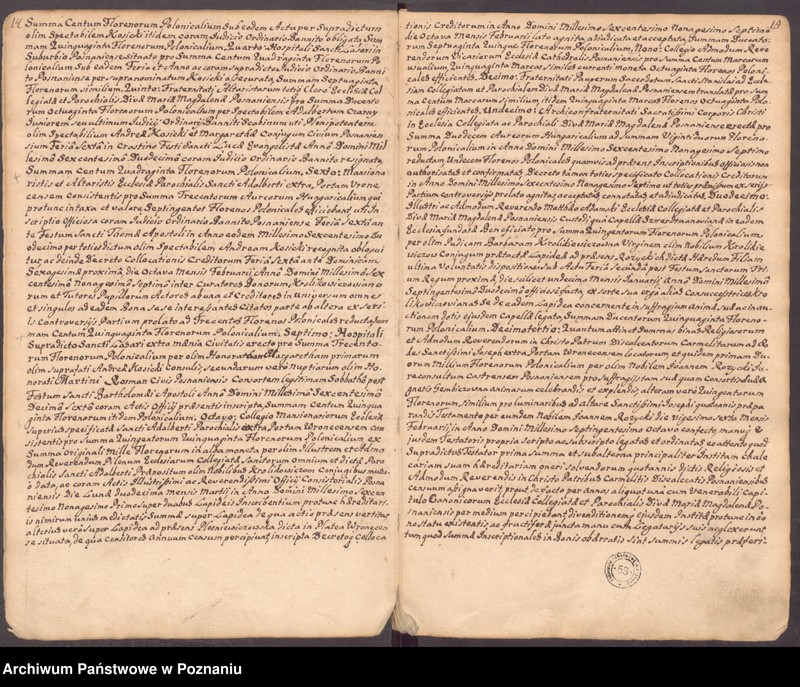 14
Summa Centum Florenorum Polonicalium Sub eodem Acta per Supradictum
olim Spectabilem Kosicki itidem coram Judicio Ordinario Bannito obligata, Sum-
mam Quinquaginta Florenorum, Polonicalium, Quarto: Hospitali Sancti Lazari in
Suburbio Posnaniensi situato pro Summa Centum Quadraginta Florenorum Po-
lonicalium Sub eadem Feria et Anno ac coram supradicto Judicio Ordinario Banni-
to Posnaniense per Supranominatum Kosicki assecurata, Summam Septuaginta
Florenorum similium, Quinto: Fraternitati Altaristarum totius Cleri Ecclesiæ Col-
legiatæ et Parochialis Divæ Mariæ Magdalenæ Posnaniensis pro Summa Ducento-
rum Octuaginta Florenorum Polonicalium per Spectabilem Adalbertum Czarny
Juniorem
olim Spectabilium Andreæ Kosicki et Margarethæ Conjugum Civium Posnanien-
sium Feria Sexta in Crastino Festi Sancti Lucæ Evangelistæ Anno Domini Mil-
lesimo Sexcentesimo Duodecimo coram Judicio Ordinario Bannito resignata
Summam Centum Quadraginta Florenorum Polonicalium, Sexto: Mansiona-
riistis et Altaristis Ecclesiæ Parochialis Sancti Adalberti extra Portam Vrone-
censem consistentis pro Summa Trecentorum Aureorum Hungaricalium qui
pro tunc in taxa et valore Septingentos Florenos Polonicales efficiebant uti In-
scriptio officiosa coram Judicio Ordinario Bannito Posnaniense Feria Sexta an-
te Festum Sancti Thomæ Apostoli in Anno eodem Millesimo Sexcentesimo Du-
odecimo per toties dictum olim Spectabilem Andream Kosicki recognita obloqui-
tur, ac deinde Decreto Collocationis Creditorum Feria Sexta ante Dominicam
Sexagesimæ proxima, die Octava Mensis Februarii Anno Domini Millesimo Sex-
centesimo Nonagesimo Septimo inter Curatores Bonorum Krolikowiczowiano-
rum et Tutores Pupillorum Actores ab una et Creditores in Universum omnes
et singulos ad eadem Bona se se interessantes Citatos parte ab altera ex serii-
is Controversiis Partium prolato ad Trecentos Florenos Polonicales reducta, Sum-
mam Centum Quinquaginta Florenorum Polonicalium, Septimo: Hospitali
Supradicto Sancti Lazari extra mænia Civitatis erecto pro Summa Trecento-
rum Florenorum Polonicalium per olim Honoratam Margaretham primarum
olim suprafati Andreæ Kosicki Consulis, Secundarum vero Nuptiarum olim Ho-
norati Martini Roman Civis Posnaniensis Consortem legitimam Sabbatho post
Festum Sancti Bartholomæi Apostoli Anno Domini Millesimo Sexcentesimo
Decimo Sexto coram Actis Officii præsentis inscripta, Summam Centum Quinqua-
ginta Florenorum itidem Polonicalium, Octavo: Collegio Mansionariorum Ecclesiæ
Superius specificatæ Sancti Adalberti Parochialis extra Portam Vronecensem con-
sistentis pro Summa Quingentorum Quinquaginta Florenorum Polonicalium ex
Summa Originali Mille Florenorum in alba moneta per olim Illustrem et Admo-
dum Reverendum Pilenam Ecclesiarum Collegiatæ Sanctorum Omnium et dictæ Paro-
chialis Sancti Adalberti Præpositum olim Nobilibus Krolikowiczom Conjugibus mutu-
o data, ac coram Actis Illustrissimi ac Reverendissimi Officii Consistorialis Posna-
niensis Die Lunæ duodecima Mensis Martii in Anno Domini Millesimo Sexcen-
tesimo Nonagesimo Primo super duabus Lapideis Inscribentium protunc hæreditari-
is nimirum unius medietatis Summæ super Lapidea de qua actis præsens vertitur
alterius vero super Lapidea ad præsens Plesniewiczowska dicta in Platea Vronecen-
se situata, de qua cæsitores Annuum censum percipiunt, inscripta Decretoq Colloca-
14
tionis Creditorum in Anno Domini Millesimo Sexcentesimo Nonagesimo Septimo
die Octava Mensis Februarii lato agnita, adjudicata et acceptata, Summam Ducento-
rum Septuaginta Quinque Florenorum Polonicalium, Nono: Collegio Admodum Reve-
rendorum Vicariorum Ecclesiæ Cathedralis Posnaniensis pro Summa Centum Marcarum
usualium Quinquaginta Marcos, similes currentis monetæ Octuaginta Florenos Poloni-
cales efficientes, Decimo: Fraternitati Pauperum Sacerdotum Sancti Stanislai ad Eccle-
siam Collegiatam et Parochialem Divæ Mariæ Magdalenæ Posnaniensem translatæ pro Sum-
ma Centum Marcarum similium itidem Quinquaginta Marcos Florenos Octuaginta Polo-
nicales efficientes, Undecimo: Archiconfraternitati Sacratissimi Corporis Christi
in Ecclesia Collegiata ac Parochiali Divæ Mariæ Magdalenæ Posnaniensi erectæ pro
Summa Duodecim Aureorum Hungaricalium ad Summam Viginti duorum Floreno-
rum Polonicalium in Anno Domini Millesimo Sexcentesimo Nonagesimo Septimo
redactam Undecim Florenos Polonicales quamvis ad præsens Inscriptionibus officiosis non
authorisatas et confirmatas, Decreto tamen toties specificato Collocationis Creditorum
in Anno Domini Millesimo Sexcentesimo Nonagesimo Septimo ut toties præmissum ex seriis
Partium controversiis prolato agnitas acceptatas connotatas et adjudicatas, Duodecimo:
Illustri ac Admodum Reverendo Matthæo Adamski Ecclesiæ Collegiatæ et Parochialis
Divæ Mariæ Magdalenæ Posnaniensis Custodi qua Capellæ in eadem
Ecclesia fundatæ Beneficiato pro Summa Quingentorum Florenorum Polonicalium,
per olim Pudicam Barbaram Krolikiewiczowna Virginem olim Nobilium Krolikie-
wiczow Conjugum prætactæ Lapideæ ad præsens Rozycki dictæ Hæredum Filiam
ultima voluntatis dispositione Sub Actu Feria Secunda post Festum Sanctorum Tri-
um Regum proxima, die scilicet undecima Mensis Januarii Anno Domini Millesimo
Septingentesimo Duodecimo officiose facta, ex sorte sua virgo alias Consuccestrices Kro-
likiewiczowianas e de eadem Lapidea concernente in suffragium animæ suæ ac in tu-
itionem dotis ejusdem Capellæ legata, Summam Ducentorum Quinquaginta Floreno-
rum Polonicalium. Decimotertio: Quantum attinet Summas binas Religiosorum
et Admodum Reverendorum in Christo Patrum Discalceatorum Carmelitarum ad Æ-
des Sanctissimi Joseph extra Portam Vronecensem locatorum et quidem primam Du-
orum Millium Florenorum Polonicalium per olim Nobilem Joannem Rozycki Ju-
reconsultum Castrensem Posnaniensem pro suffragiis tam suæ quam Consortis duæ A-
gnetis Gembiczowna animarum celebrandis et explendis, alteram vero Quingentorum
Florenorum, similium pro luminaribus ad Altare Sanctissimi Josephi quotannis præpa-
randis Testamento per eundem Nobilem Joannem Rozycki die Vigesima Sexta Mensis
Februarii in Anno Domini Millesimo Septingentesimo Octavo confecto, manuq e-
jusdem Testatoris propria scripto ac subscripto legatas et ordinatas eo attento quod
Supradictus Testator prima Summa et subalterna principaliter Institam & Cale-
cariam suam hæreditariam oneri solvendorum quotannis dictis Religiosis et
Admodum Reverendis in Christo Patribus Carmelitis Discalceatis Posnaniensibus
censuum adignaverit, prout de facto per annos aliquot una cum Venerabili Capi-
tulo Canonicorum Ecclesiæ Collegiatæ et Parochialis Divæ Mariæ Magdalenæ Po-
snaniensis per medium percipiebant, divenditionemq ejusdem Institæ protunc in bo-
no statu existentis ac fructiferæ juncta manu cum Legatariis suis neglexerunt
tum quod Summæ Inscriptionales in Bonis obæratis sint Summis legatis præferi-
53
Archiwum Państwowe w Poznaniu